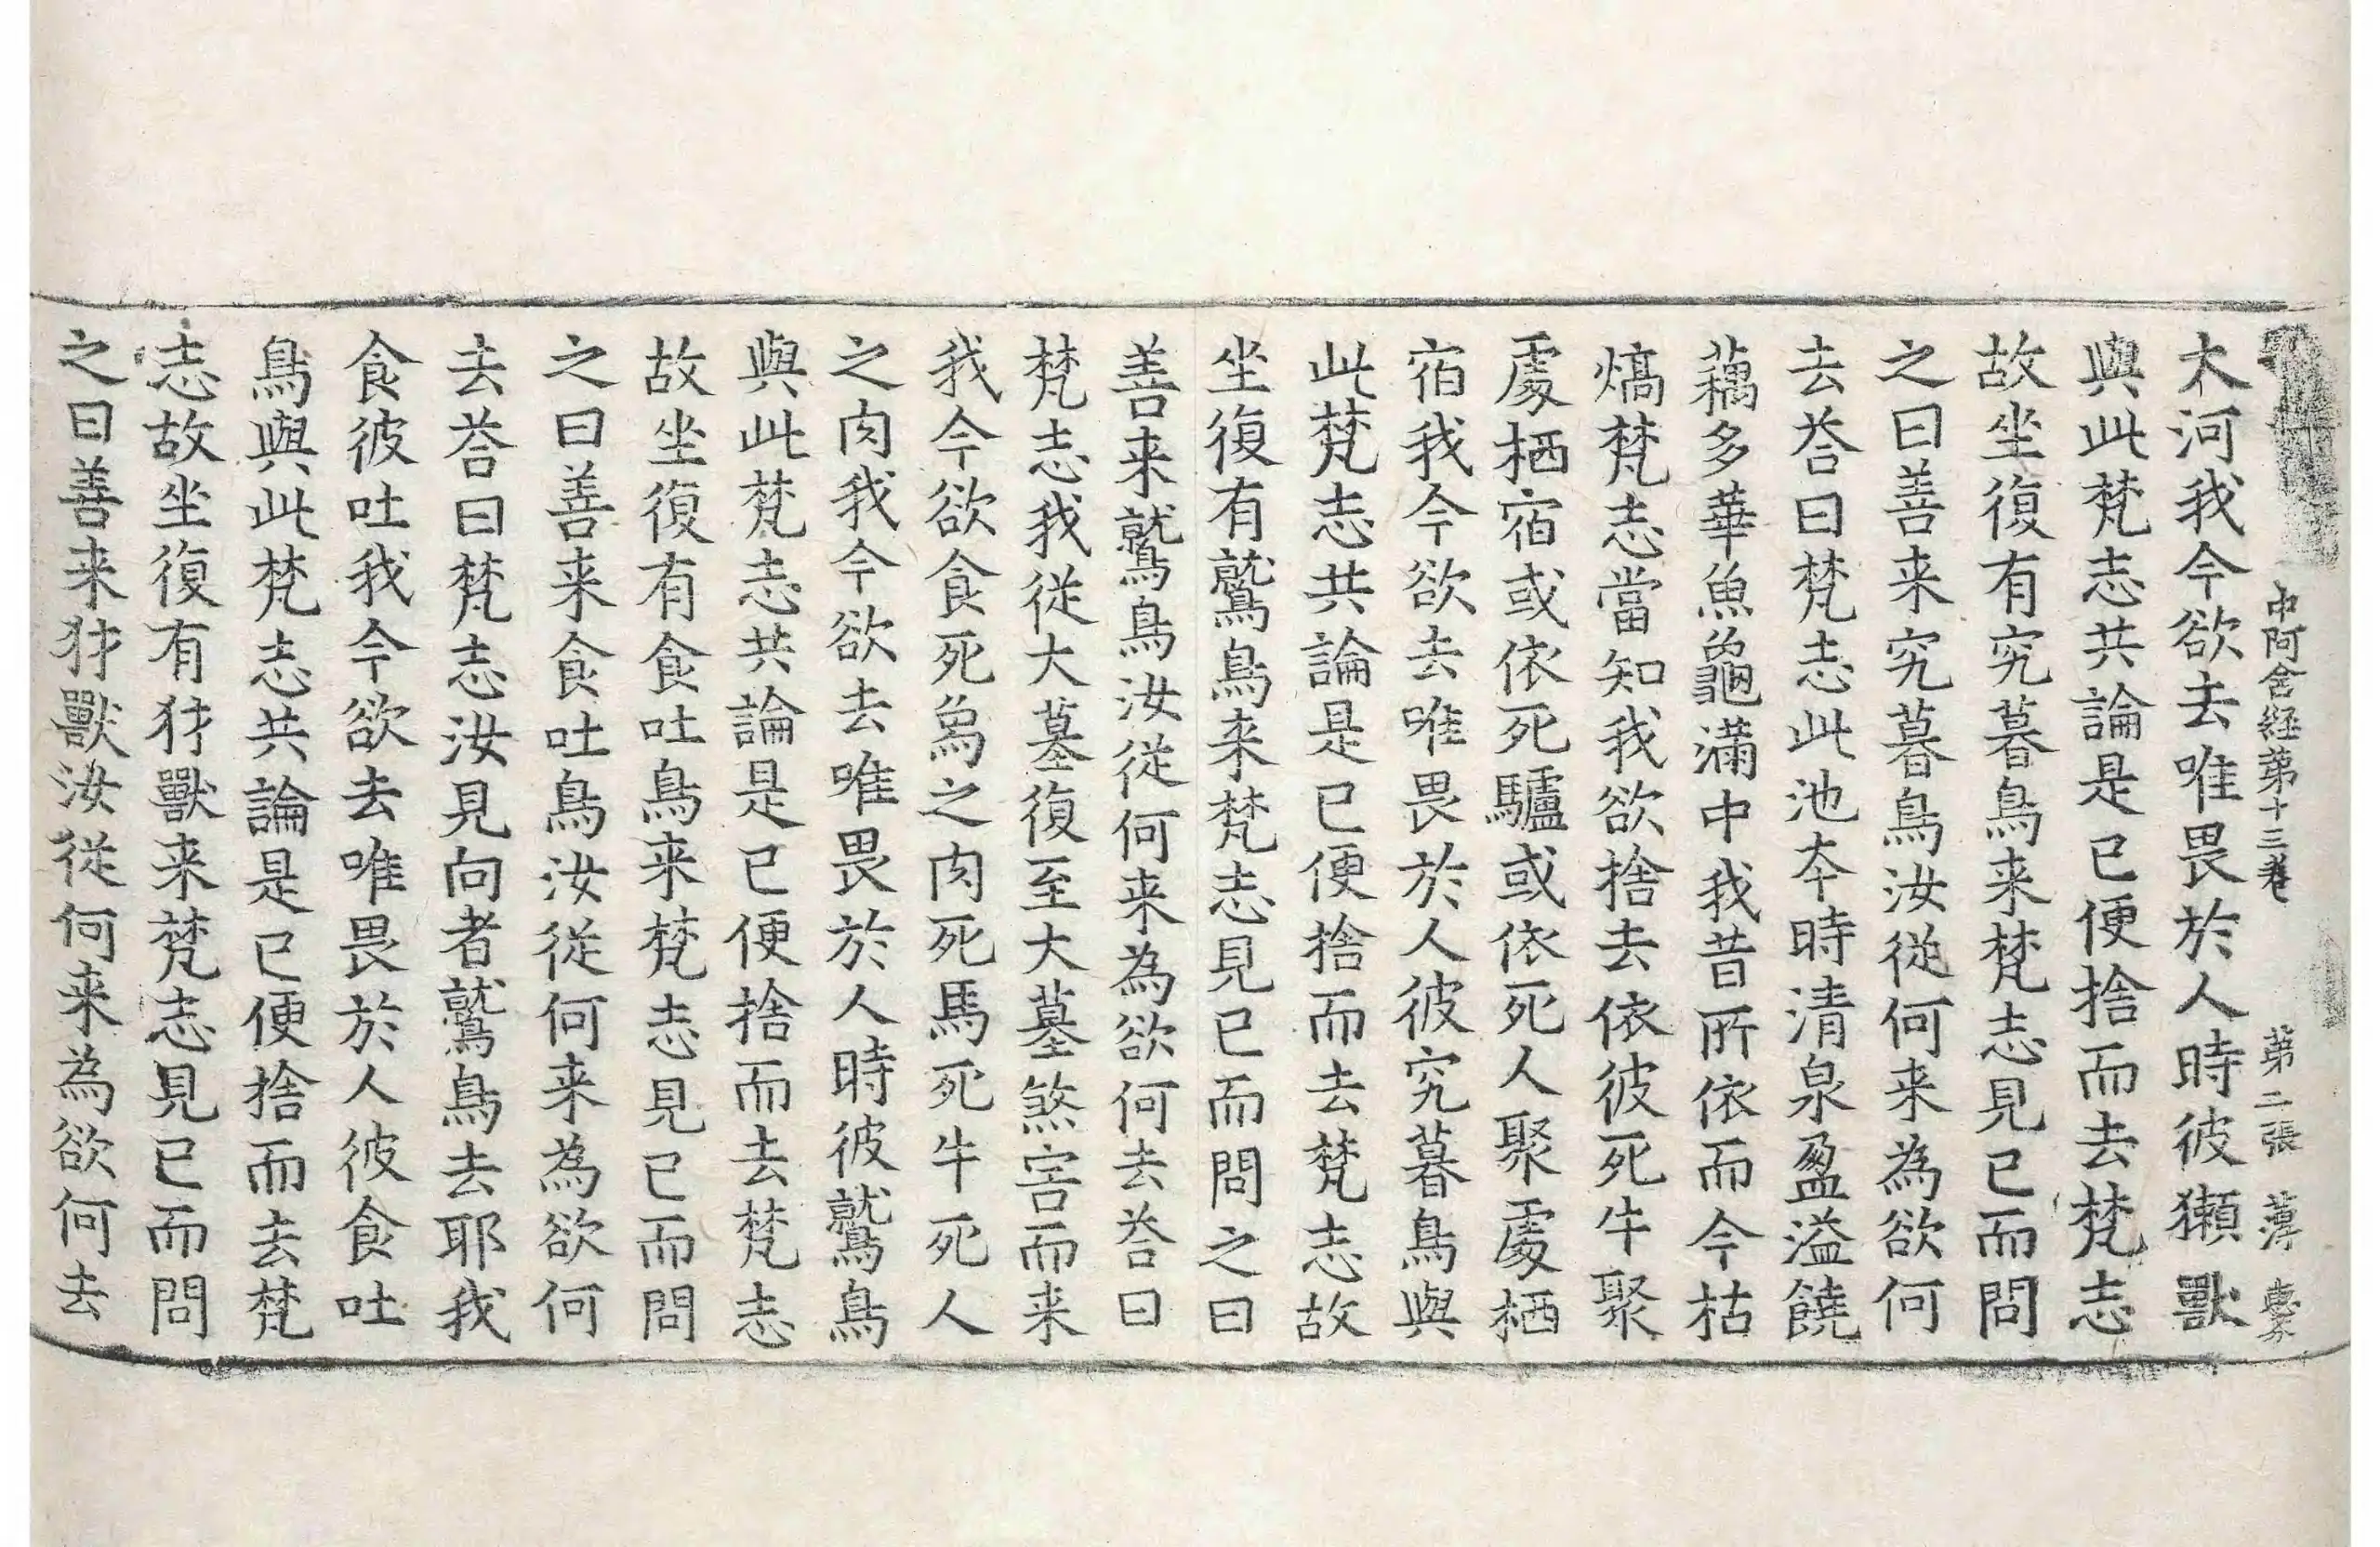 中阿含経第十三卷 第二張 薄
大河我今欲去唯畏於人時彼獺獸
與此梵志共論是已便捨而去梵志
故坐復有究暮鳥来梵志見已而問
之曰善来究暮鳥汝從何来為欲何
去荅曰梵志此池夲時清泉盈溢饒
藕多華魚龜滿中我昔所依而今枯
熇梵志當知我欲捨去依彼死牛聚
處栖宿或依死驢或依死人聚處栖
宿我今欲去唯畏於人彼究暮鳥與
此梵志共論是已便捨而去梵志故
坐復有鷲鳥来梵志見已而問之曰
善来鷲鳥汝從何来為欲何去荅曰
梵志我從大墓復至大墓煞害而来
我今欲食死象之肉死馬死牛死人
之肉我今欲去唯畏於人時彼鷲鳥
與此梵志共論是已便捨而去梵志
故坐復有食吐鳥来梵志見已而問
之曰善来食吐鳥汝從何来為欲何
去荅曰梵志汝見向者鷲鳥去耶我
食彼吐我今欲去唯畏於人彼食吐
鳥與此梵志共論是已便捨而去梵
志故坐復有犲獸来梵志見已而問
之曰善来犲獸汝從何来為欲何去